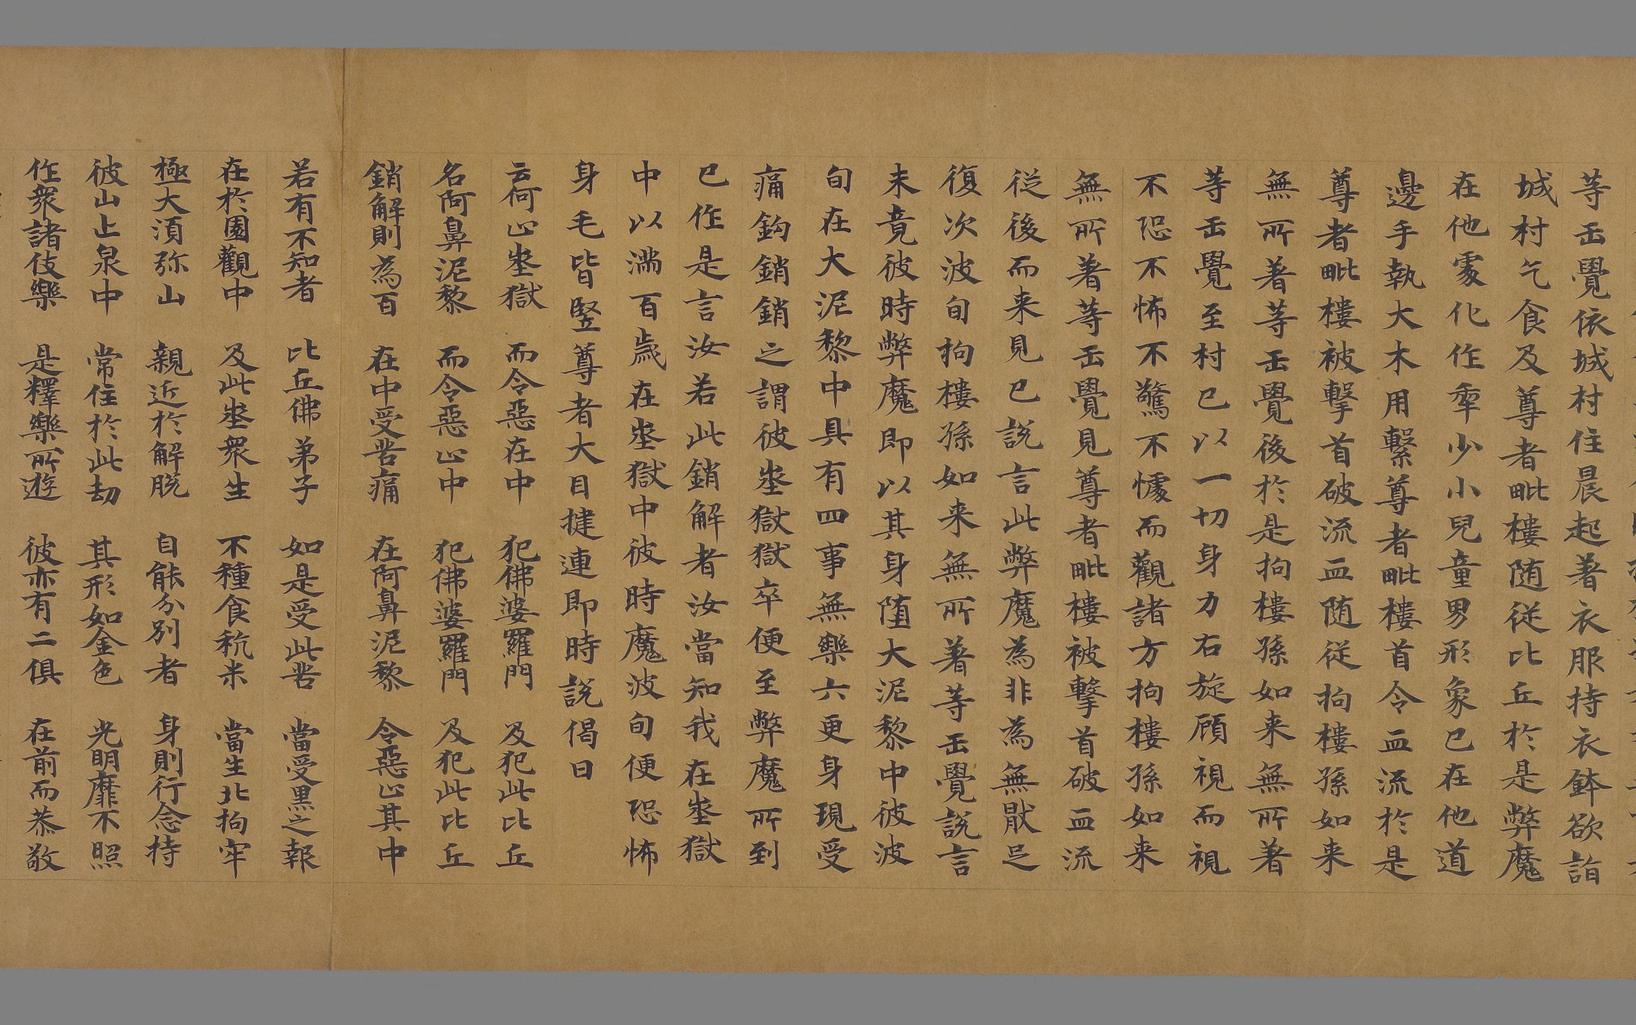 等正覺依城村住晨起著衣服持衣鉢欲詣
城村乞食及尊者毗樓随從比丘於是弊魔
在他家化作牽少小兒童男形象已在他道
邊手執大木用繫尊者毗樓首令血流於是
尊者毗樓被擊首破流血随從拘樓孫如来
無所著等正覺後於是拘樓孫如来無所著
等正覺至村已以一切身力右旋顧視而視
不恐不怖不驚不懅而觀諸方拘樓孫如来
無所著等正覺見尊者毗樓被擊首破血流
從後而来見已說言此弊魔為非為無猒足
復次波旬拘樓孫如来無所著等正覺說言
未竟彼時弊魔即以其身堕大泥黎中彼波
旬在大泥黎中具有四事無樂六更身現受
痛鈎銷銷之謂彼埊獄獄卒便至弊魔所到
已作是言汝若此銷解者汝當知我在埊獄
中以滿百歲在埊獄中彼時魔波旬便恐怖
身毛皆竪尊者大目揵連即時說偈曰
云何止埊獄 而令惡在中 犯佛婆羅門 及犯此比丘
名阿鼻泥黎 而令惡止中 犯佛婆羅門 及犯此比丘
銷解則為百 在中受苦痛 在阿鼻泥黎 令惡止其中
若有不知者 比丘佛弟子 如是受此苦 當受黑之報
在於園觀中 及此埊衆生 不種食秔米 當生北拘牢
極大湏弥山 親近於解脫 自能分別者 身則行念持
彼山止泉中 常住於此劫 其形如金色 光明靡不照
作衆諸伎樂 是釋樂所遊 彼亦有二俱 在前而恭敬